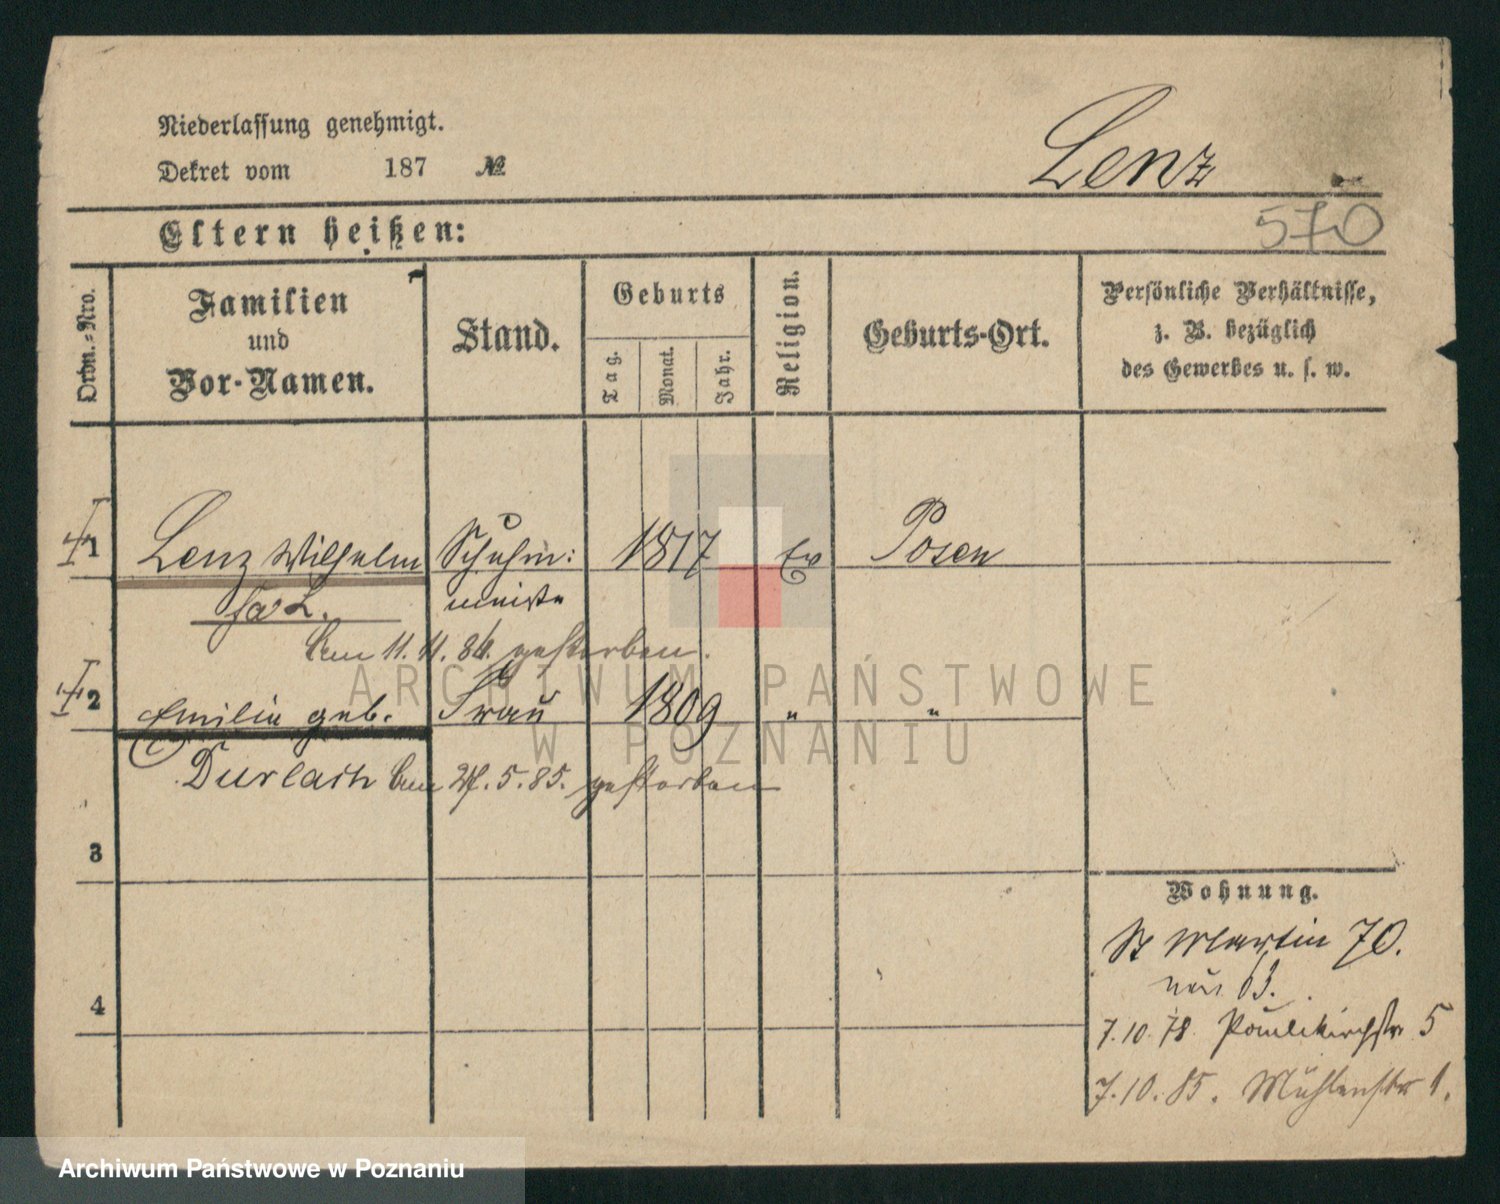 Niederlassung genehmigt.
Dekret vom 187 №
Lenz
570
Eltern heißen:
Ordn.-Nro.
Familien
und
Vor-Namen.
Stand.
Geburts
Tag.
Monat.
Jahr.
Religion.
Geburts-Ort.
Persönliche Verhältnisse,
z. B. bezüglich
des Gewerbes u. s. w.
1 Lenz Wilhelm Schuhm: 1817 Ev Posen
meister
am 11. 11. 86. gestorben.
2 Emilie geb. Frau 1809 " "
Durlach am 5. 85. gestorben
3
4
Wohnung.
St Martin 70.
neu 63.
7. 10. 78. Paulikirchstr 5
7. 10. 85. Mühlenstr 1.
ARCHIWUM PAŃSTWOWE
W POZNANIU
Archiwum Państwowe w Poznaniu